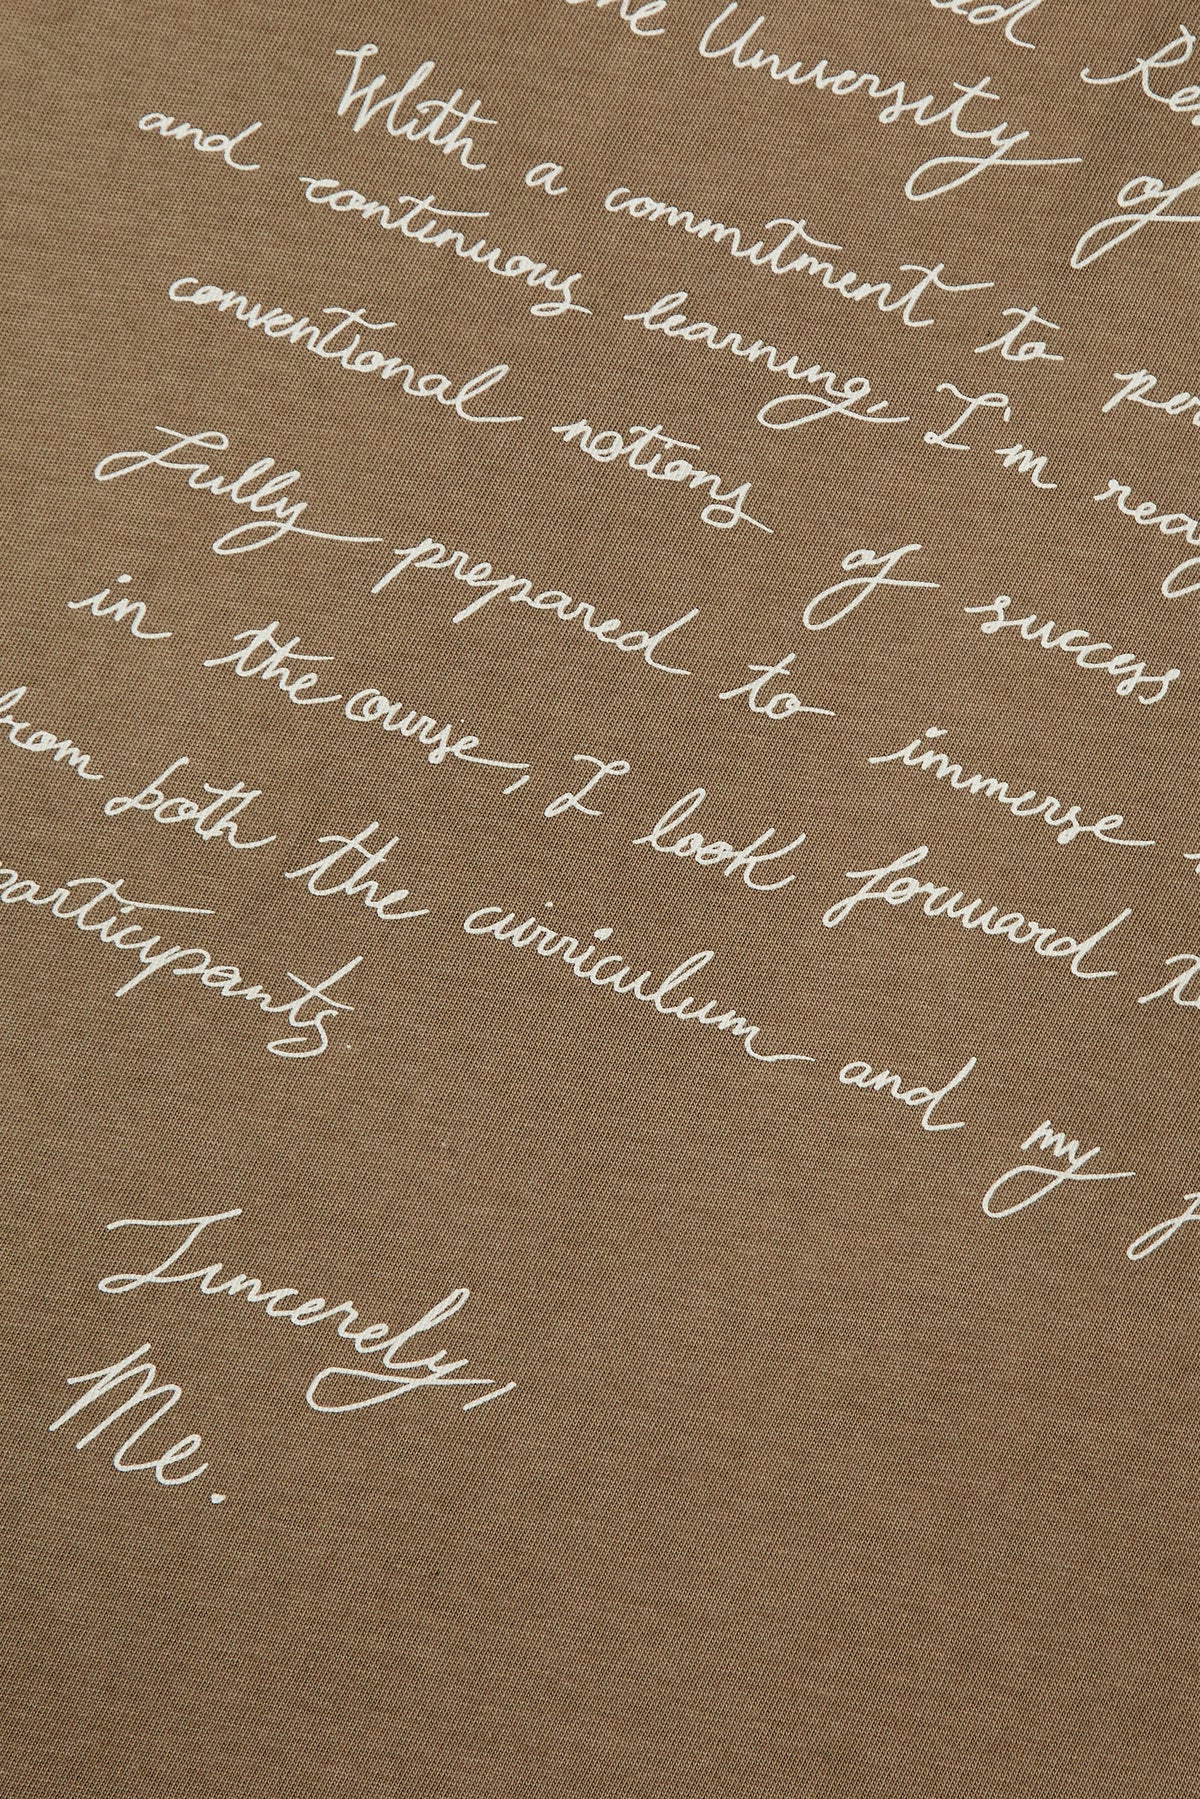 the University of
With a commitment to
and continuous learning, I'm
conventional notions of success
Fully prepared to immerse
in the course, I look forward
from both the curriculum and my
participants.
Sincerely,
Me.